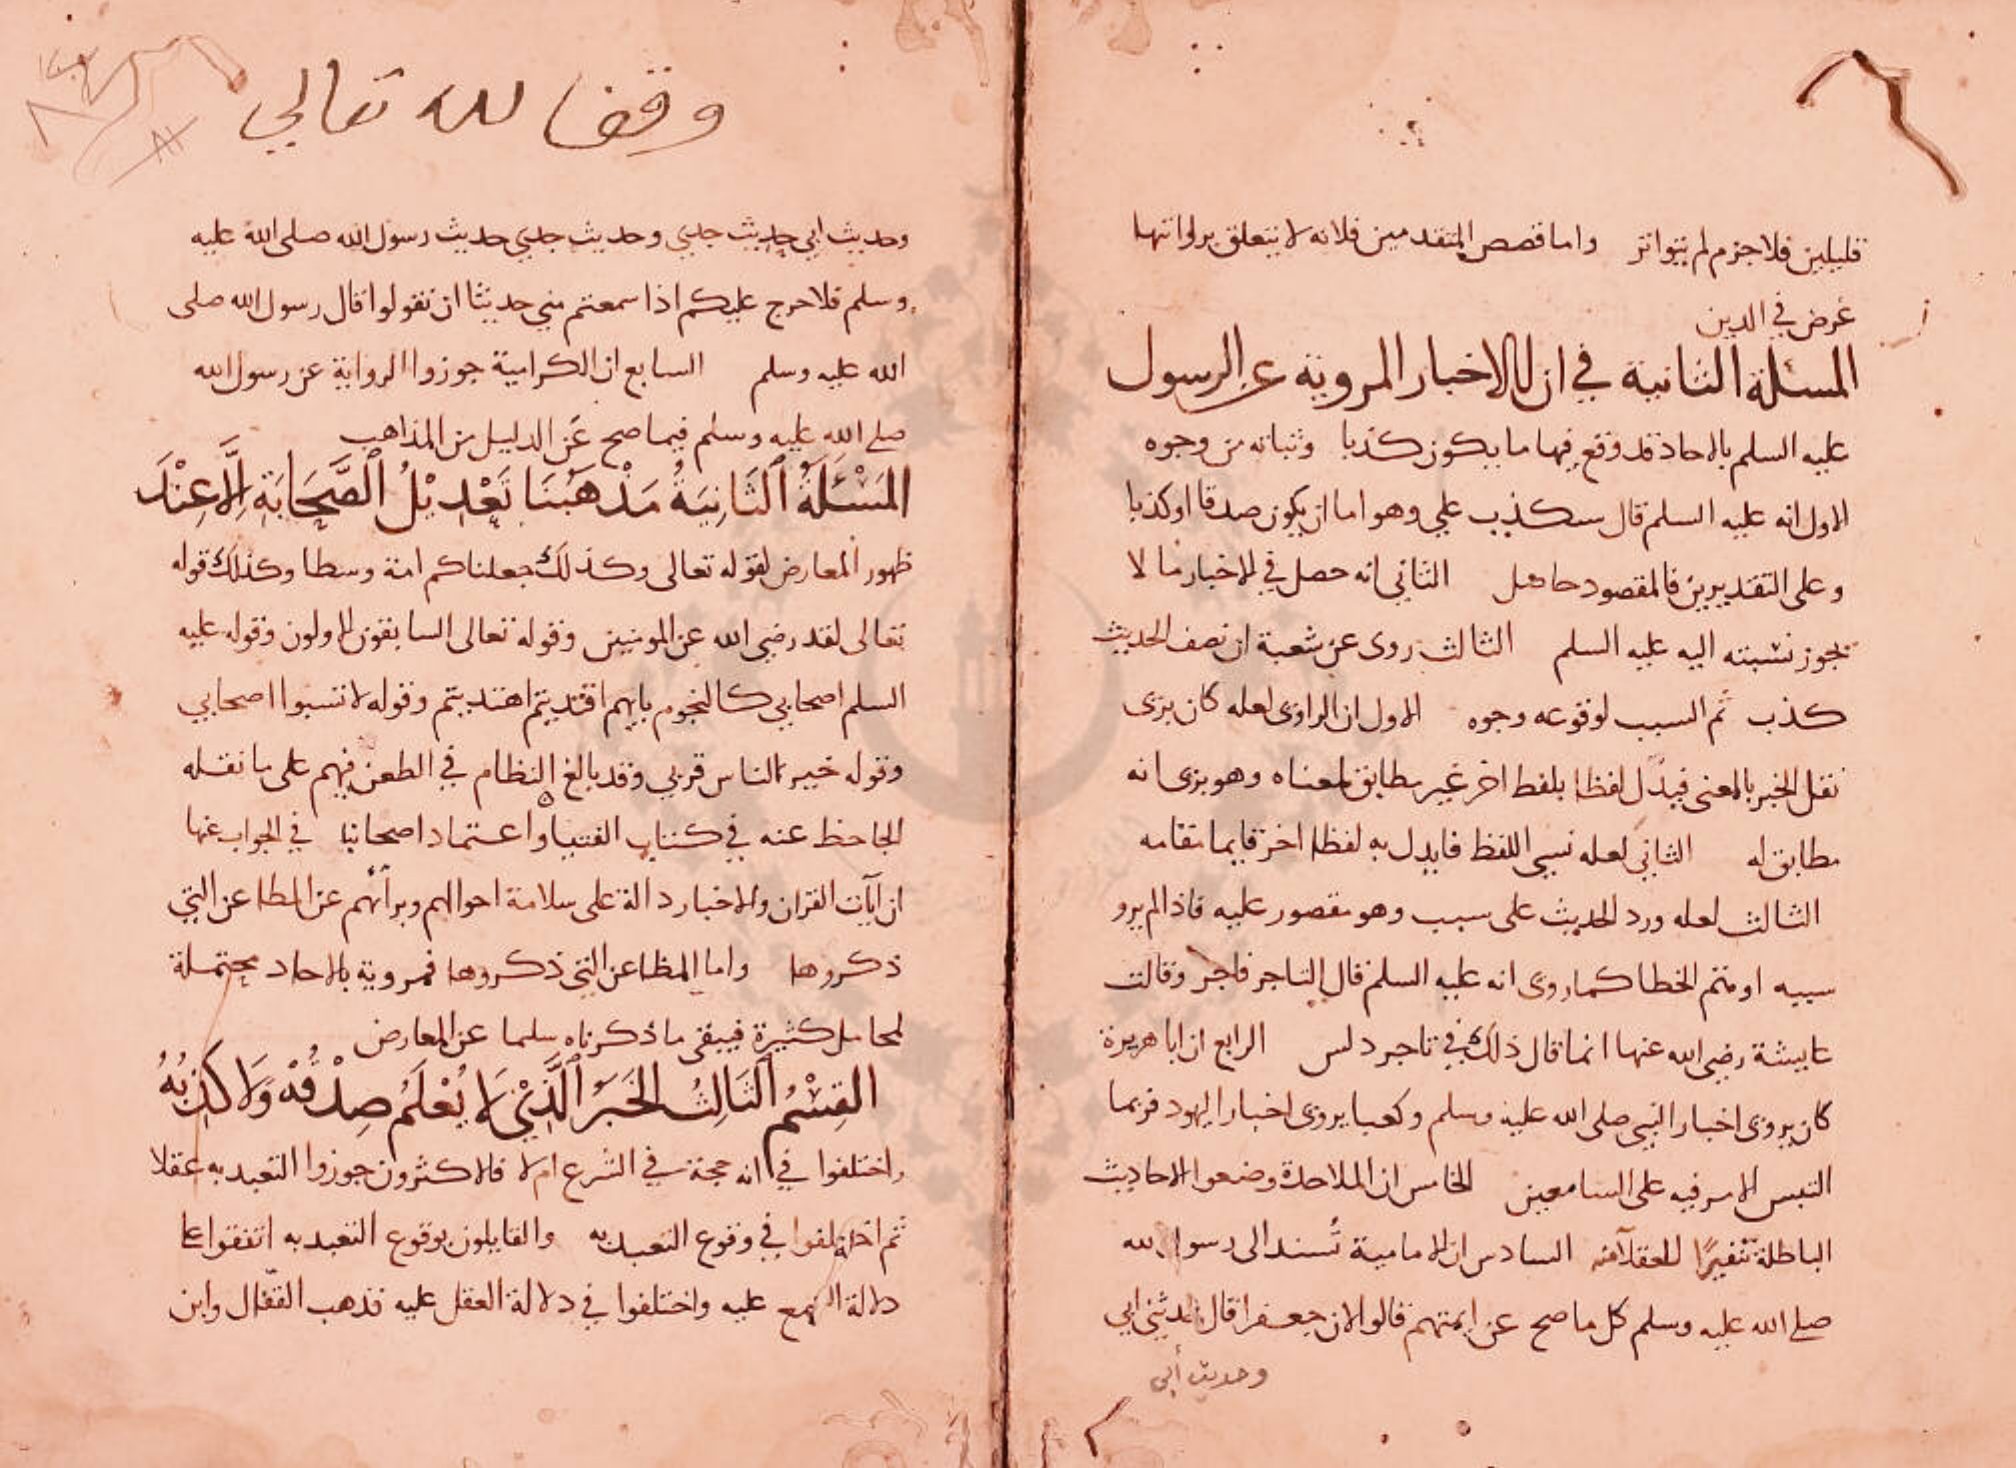 قليلين فلا جزم لم يتواتر واما قصص المتقدمين فلانه لا يتعلق بروايتها
غرض في الدين
المسئلة الثانية في ان الاخبار المروية عن الرسول
عليه السلم بالاحاد قد وقع فيها ما يكون كذبا وثباته من وجوه
الاول انه عليه السلم قال سيكذب علي وهو اما ان يكون صدقا او كذبا
وعلى التقديرين فالمقصود حاصل الثاني انه حصل في الاخبار ما لا
يجوز نسبته اليه عليه السلم الثالث روى عن شعبة ان نصف الحديث
كذب ثم السبب لوقوعه وجوه الاول ان الراوى لعله كان يرى
نقل الخبر بالمعنى فيبدل لفظا بلفظ اخر غير مطابق لمعناه وهو يرى انه
مطابق له الثاني لعله نسي اللفظ فابدل به لفظا اخر قايما مقامه
الثالث لعله ورد الحديث على سبب وهو مقصور عليه فاذا لم يرو
سببه او متم الخطا كما روى انه عليه السلم قال التاجر فاجر وقالت
عايشة رضي الله عنها انما قال ذلك في تاجر دلس الرابع ان ابا هريرة
كان يروى اخبار النبي صلى الله عليه وسلم وكعبا يروى اخبار اليهود فربما
التبس الامر فيه على السامعين الخامس ان الملاحدة وضعوا الاحاديث
الباطلة تنفيرًا للعقلا منه السادس ان الامامية تُسند الى رسول الله
صلى الله عليه وسلم كل ما صح عن ايمتهم قالوا لان جعفرا قال حدثني ابي
وحديث أبي
وقفا لله تعالى
وحديث ابي حديث جدي وحديث جدي حديث رسول الله صلى الله عليه
وسلم فلا حرج عليكم اذا سمعتم مني حديثا ان تقولوا قال رسول الله صلى
الله عليه وسلم السابع ان الكرامية جوزوا الرواية عن رسول الله
صلى الله عليه وسلم فيما صح عن الدليل من المذاهب
المَسْئَلَةُ الثَّانِيَةُ مَذْهَبُنَا تَعْدِيْلُ الصَّحَابَةِ اِلَّا عِنْدَ
ظهور المعارض لقوله تعالى وكذلك جعلناكم امة وسطا وكذلك قوله
تعالى لقد رضي الله عن المومنين وقوله تعالى السابقون الاولون وقوله عليه
السلم اصحابي كالنجوم بايهم اقتديتم اهتديتم وقوله لا تسبوا اصحابي
وقوله خير الناس قرني وقد بالغ النظام في الطعن فيهم على ما نقله
الجاحظ عنه في كتاب الفتيا واعتماد اصحابنا في الجواب عنها
ان آيات القران والاخبار دالة على سلامة احوالهم وبرأتهم عن المطاعن التي
ذكروها واما المطاعن التي ذكروها فمروية بالاحاد محتملة
لمحامل كثيرة فيبقى ما ذكرناه سلما عن المعارض
القِسْمُ الثَّالِثُ الخَبَرُ الَّذِيْ لَا يُعْلَمُ صِدْقُهُ وَلَا كَذِبُهُ
واختلفوا في انه حجة في الشرع ام لا فالاكثرون جوزوا التعبد به عقلا
ثم اختلفوا في وقوع التعبد به والقايلون بوقوع التعبد به اتفقوا على
دلالة السمع عليه واختلفوا في دلالة العقل عليه فذهب القفّال وابن